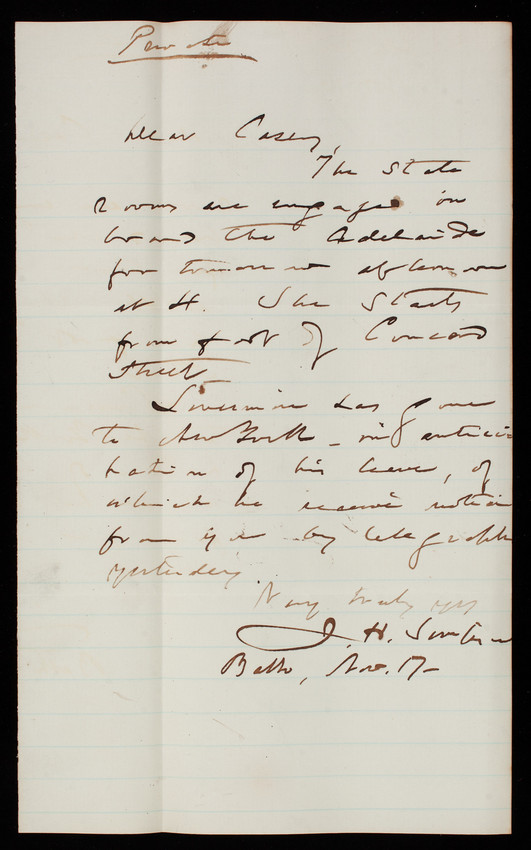 Private
Dear Casey,
The State
Rooms are engaged on
board the Adelaide
for tomorrow afternoon
at 4. She Starts
from foot of Concord
Street
has gone
to New York - in antici
pation of his leave, of
which he receive notice
from you by telegraph
yesterday.
Very truly yrs
J. H.
Balto, Nov. 17-